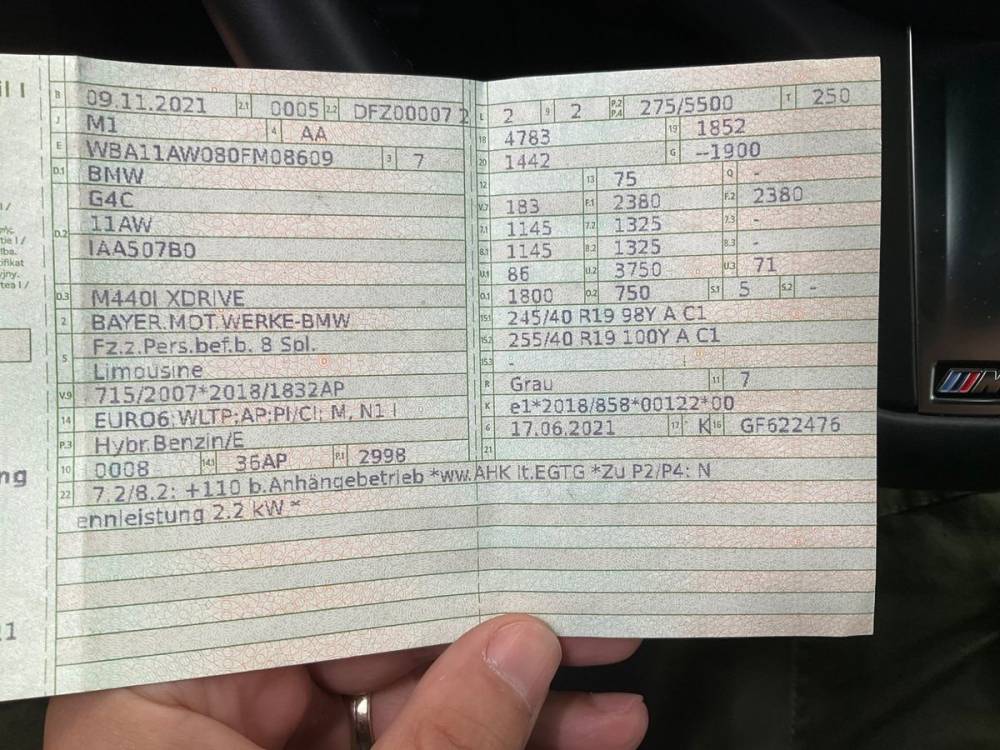 il I
B 09.11.2021 2.1 0005 2.2 DFZ00007 2
J M1 4 AA
E WBA11AW080FM08609 3 7
D.1 BMW
D.2 G4C
11AW
IAA507B0
D.3 M440I XDRIVE
2 BAYER.MOT.WERKE-BMW
5 Fz.z.Pers.bef.b. 8 Spl.
Limousine
V.9 715/2007*2018/1832AP
14 EURO6;WLTP;AP;PI/CI; M, N1 I
P.3 Hybr.Benzin/E
10 0008 14.1 36AP P.1 2998
L 2 9 2 P.2 P.4 275/5500 T 250
18 4783 19 1852
20 1442 G --1900
12 13 75 Q -
V.7 183 F.1 2380 F.2 2380
7.1 1145 7.2 1325 7.3 -
8.1 1145 8.2 1325 8.3 -
U.1 86 U.2 3750 U.3 71
O.1 1800 O.2 750 S.1 5 S.2 -
15.1 245/40 R19 98Y A C1
15.2 255/40 R19 100Y A C1
15.3 -
R Grau 11 7
K e1*2018/858*00122*00
6 17.06.2021 17 K 16 GF622476
21
22 7.2/8.2: +110 b.Anhängebetrieb *ww.AHK lt.EGTG *Zu P2/P4: N
ennleistung 2.2 kW *
ng
21
M